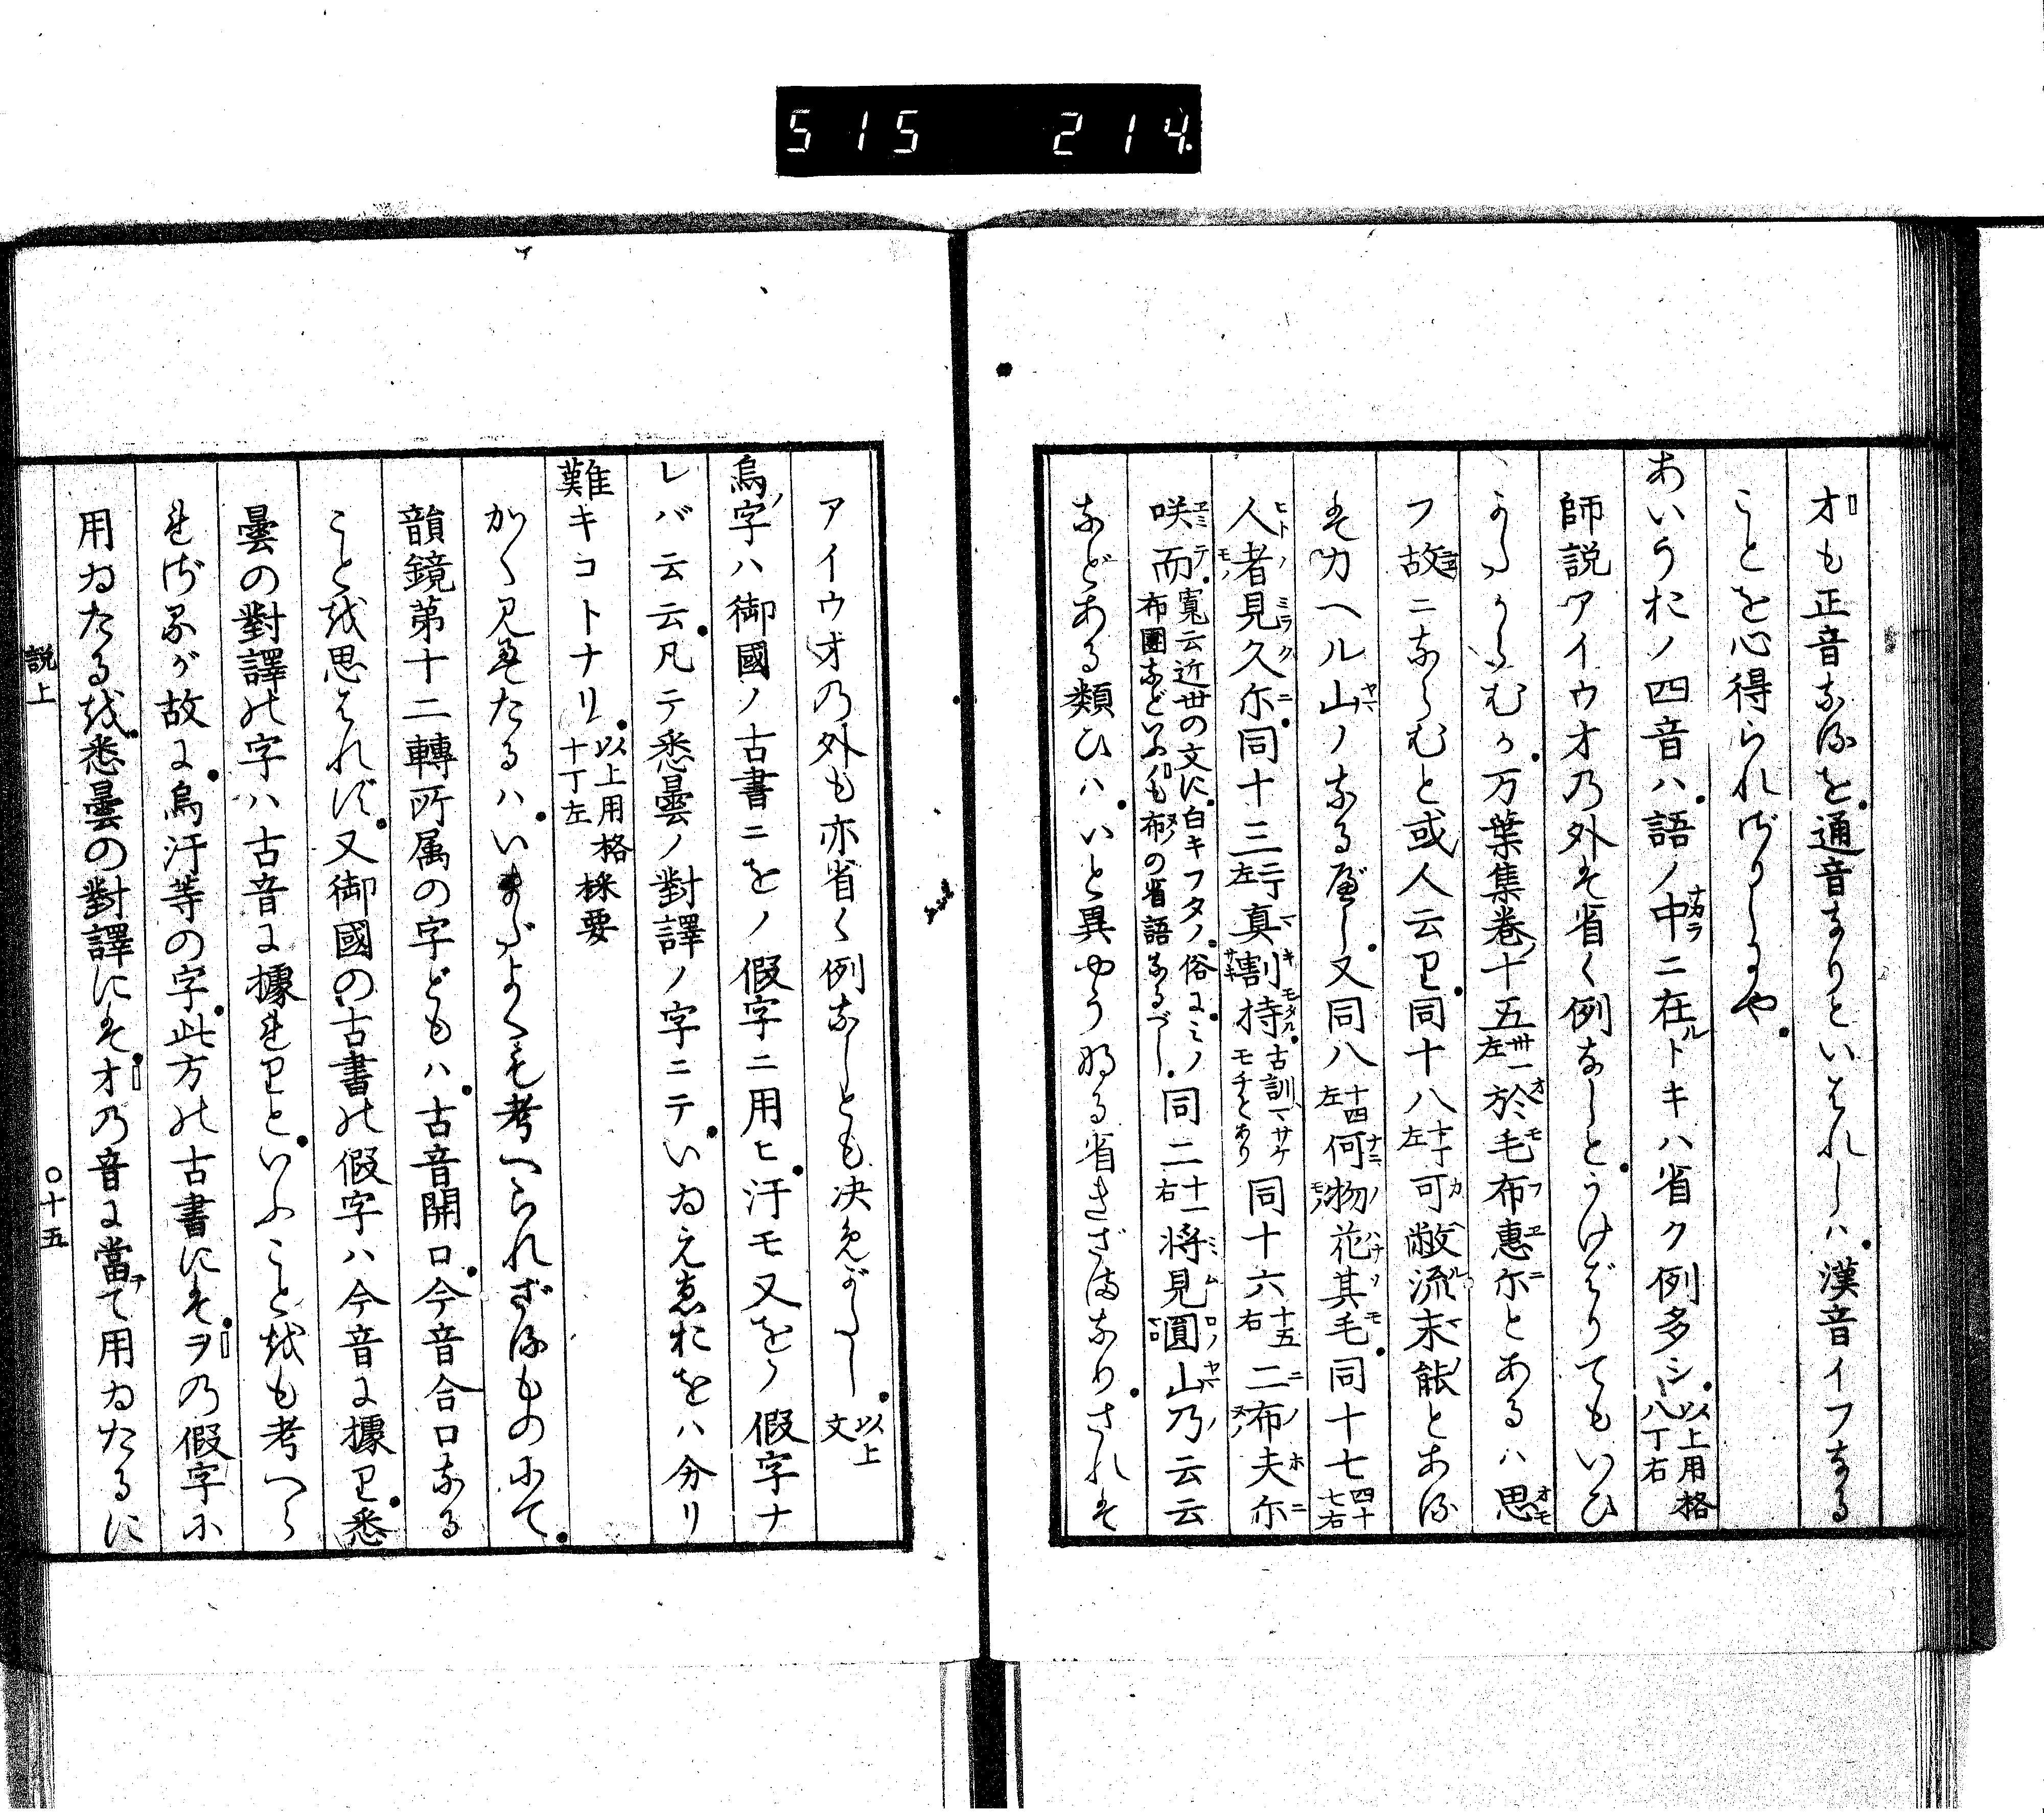 515 214
オも正音なるを通音なりといはれしハ漢音イフなる
ことを心得られざりしにや
あいうおノ四音ハ語ノ中ニ在ルトキハ省ク例多シ以上用格八丁右
師説アイウオ乃外は省く例なしとうけばりてもいひ
がたからむか万葉集巻十五卅一左於毛布惠尓とあるハ思
フ故ニならむと或人云り同十八十丁左可敝流末能とある
はカヘル山ノなるべし又同八十四左何物花其毛同十七四十七右
人者見久尓同十三二丁左真割持古訓マサケモチとあり同十六十五右二布夫尓
咲而寛云近世の文に白キフタノ俗にミノ布團などいふも布の省語なるべし同二十一右将見圓山乃云云
などある類ひハいと異やうなる省きざまなりされは
アイウオ乃外も亦省く例なしとも决めがたし以上文
烏字ハ御國ノ古書ニをノ假字ニ用ヒ汙モ又をノ假字ナ
レバ云云凡テ悉曇ノ對譯ノ字ニテいゐえゑおをハ分リ
難キコトナリ以上用格十丁左採要
かく見えたるハいまだよくも考へられざるものにて
韻鏡第十二轉所属の字どもハ古音開口今音合口なる
ことを思はれず又御國の古書の假字ハ今音に據り悉
曇の對譯の字ハ古音に據れりといふことをも考へら
れざるが故に烏汙等の字此方の古書にはヲ乃假字に
用ゐたるを悉曇の對譯にはオ乃音に當て用ゐたるに
説上 〇十五